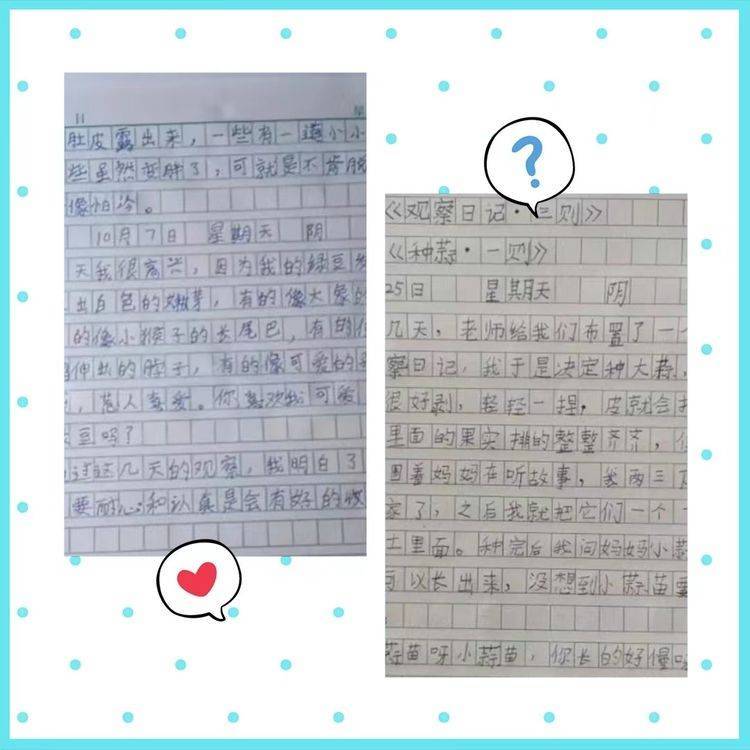 日
星
肚皮露出来，一些有一道小小
些虽然变胖了，可就是不肯脱
像怕冷。
10月7日 星期天 阴
天我很高兴，因为我的绿豆发
出白色的嫩芽，有的像大象的
的像小猴子的长尾巴，有的像
伸出的脖子，有的像可爱的
，惹人喜爱。你喜欢我可爱
豆吗？
过这几天的观察，我明白了
要耐心和认真是会有好的收
?
《观察日记·三则》
《种蒜·一则》
25日 星期天 阴
几天，老师给我们布置了一
察日记，我于是决定种大蒜，
很好剥，轻轻一捏，皮就会
里面的果实排的整整齐齐，
围着妈妈在听故事，我两三
家了，之后我就把它们一个一
土里面。种完后我问妈妈小蒜
可以长出来，没想到小蒜苗要
蒜苗呀小蒜苗，你长的好慢呀